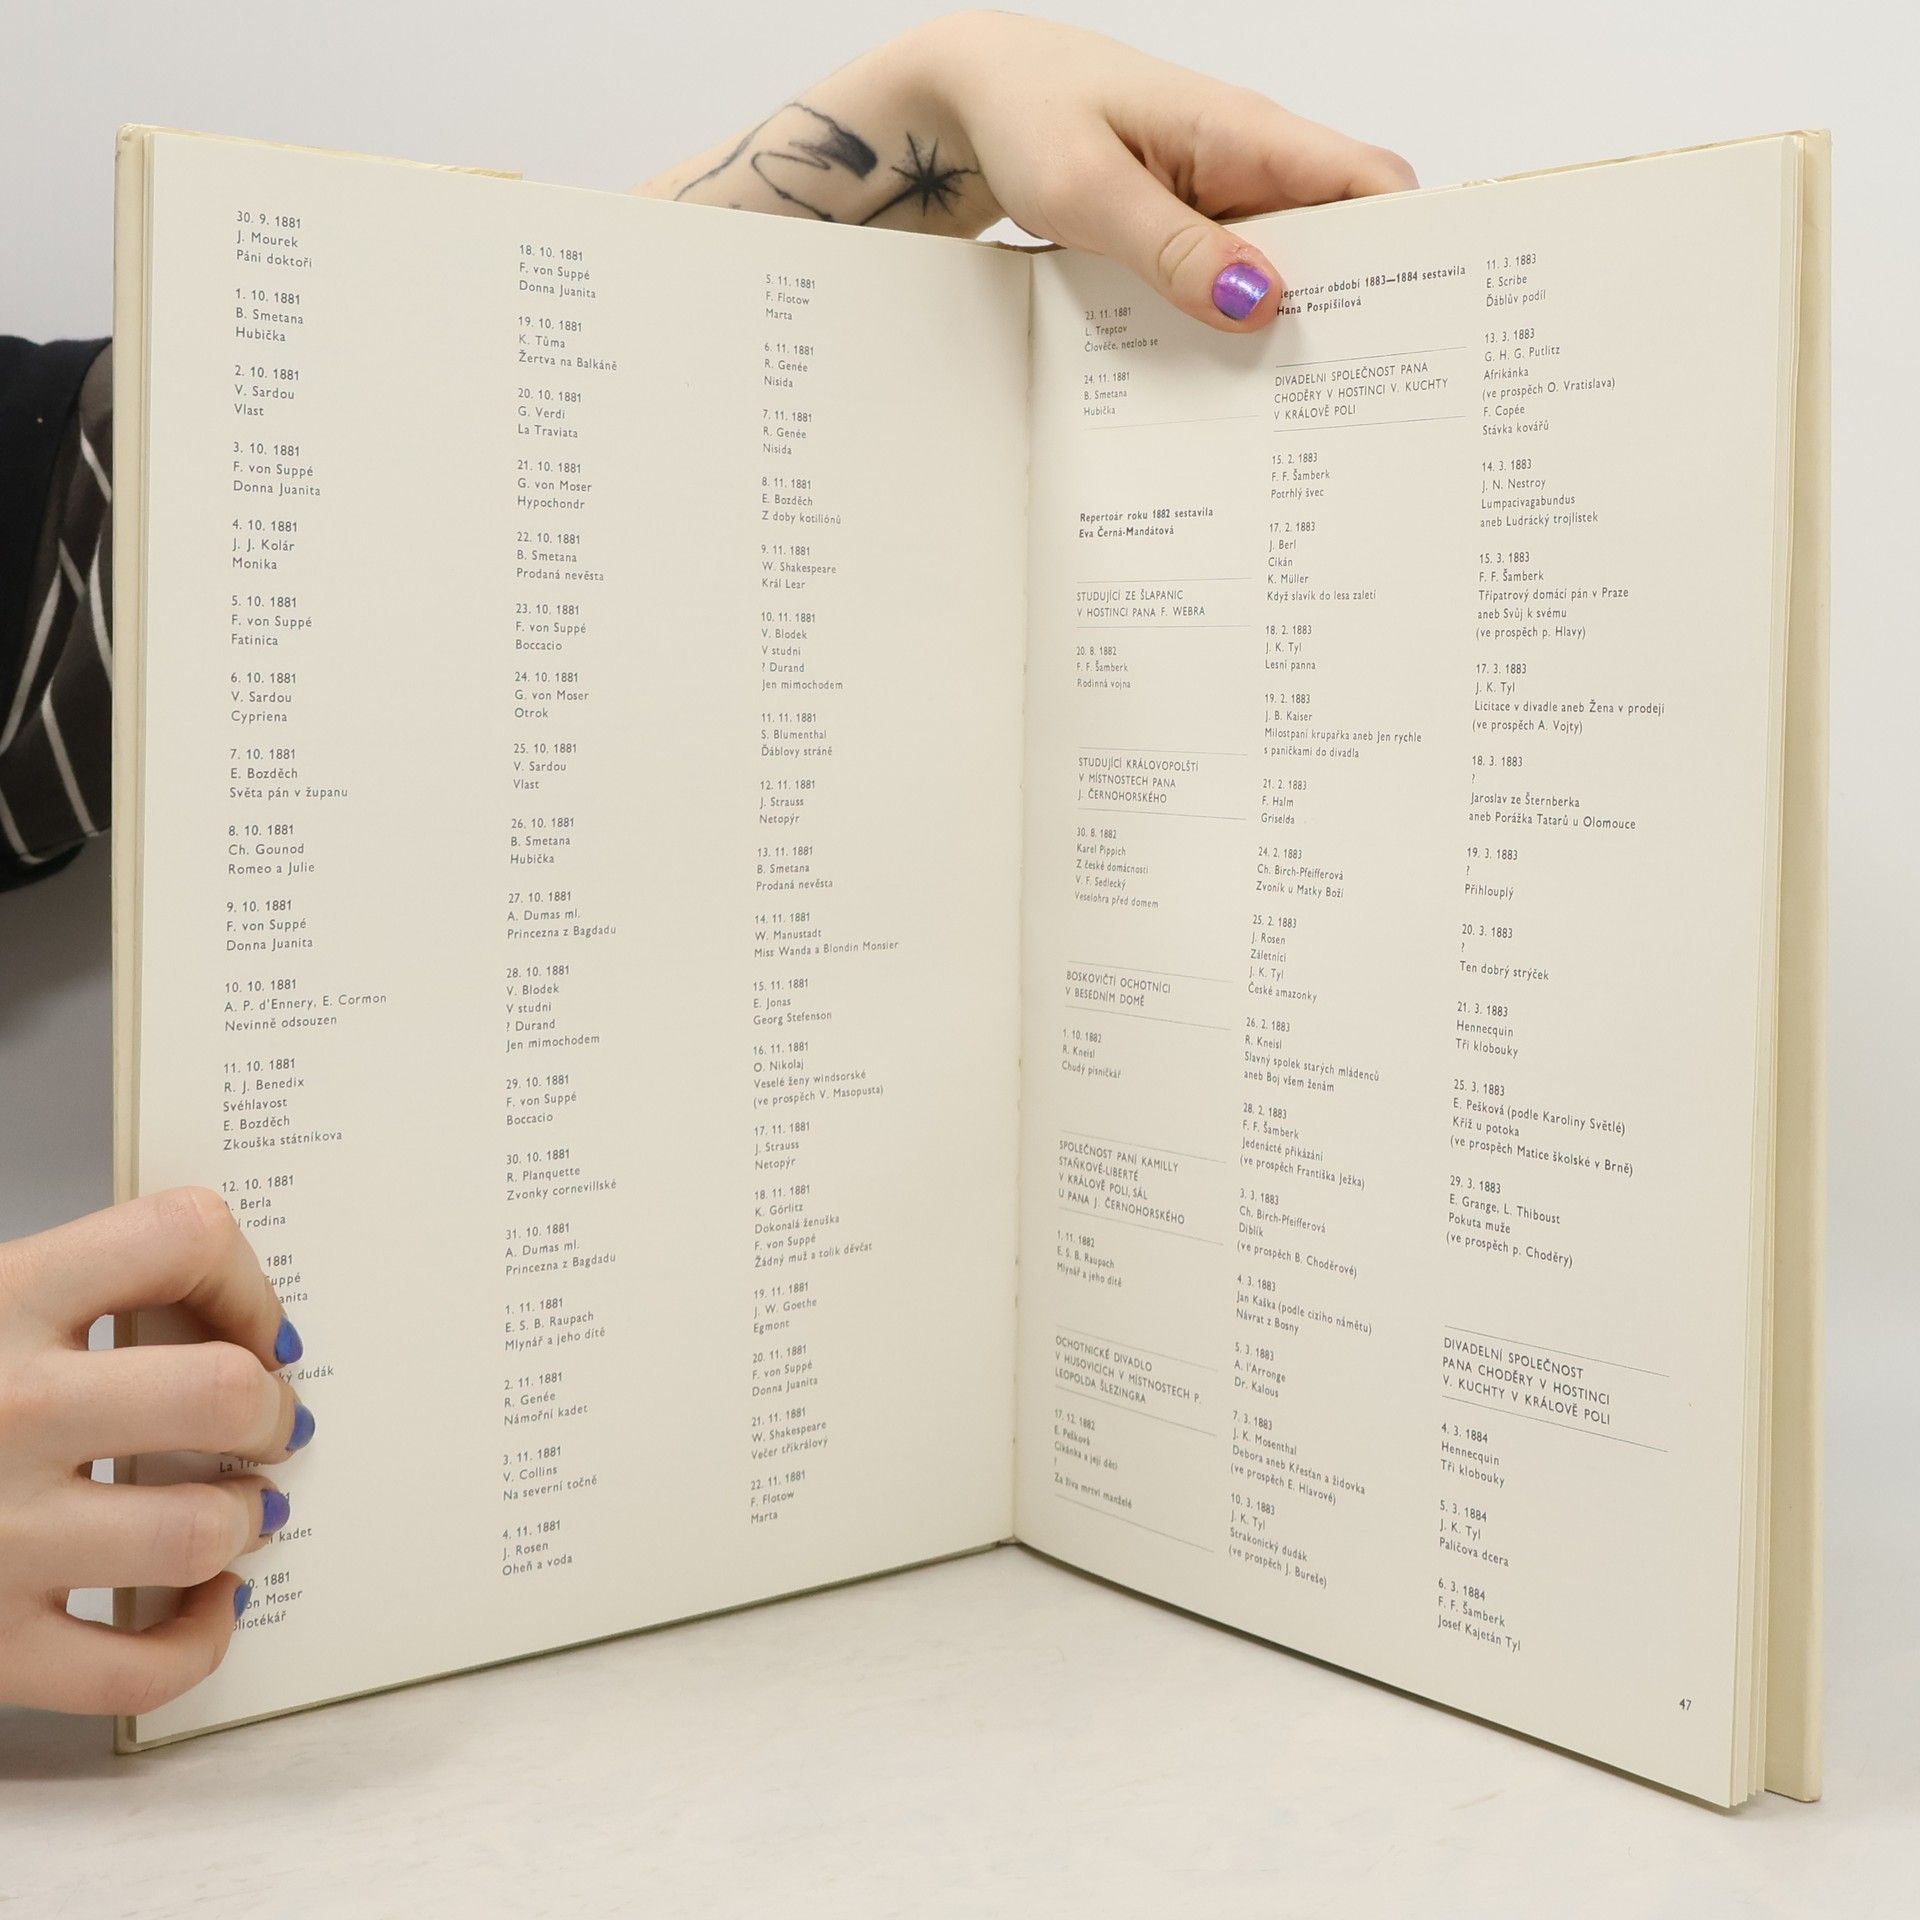 30. 9. 1881
J. Mourek
Páni doktoři
1. 10. 1881
B. Smetana
Hubička
2. 10. 1881
V. Sardou
Vlast
3. 10. 1881
F. von Suppé
Donna Juanita
4. 10. 1881
J. J. Kolár
Monika
5. 10. 1881
F. von Suppé
Fatinica
6. 10. 1881
V. Sardou
Cypriena
7. 10. 1881
E. Bozděch
Světa pán v županu
8. 10. 1881
Ch. Gounod
Romeo a Julie
9. 10. 1881
F. von Suppé
Donna Juanita
10. 10. 1881
A. P. d'Ennery, E. Cormon
Nevinně odsouzen
11. 10. 1881
R. J. Benedix
Svéhlavost
E. Bozděch
Zkouška státníkova
12. 10. 1881
Berla
rodina
1881
dudák
La
kadet
1881
Moser
18. 10. 1881
F. von Suppé
Donna Juanita
19. 10. 1881
K. Tůma
Žertva na Balkáně
20. 10. 1881
G. Verdi
La Traviata
21. 10. 1881
G. von Moser
Hypochondr
22. 10. 1881
B. Smetana
Prodaná nevěsta
23. 10. 1881
F. von Suppé
Boccacio
24. 10. 1881
G. von Moser
Otrok
25. 10. 1881
V. Sardou
Vlast
26. 10. 1881
B. Smetana
Hubička
27. 10. 1881
A. Dumas ml.
Princezna z Bagdadu
28. 10. 1881
V. Blodek
V studni
? Durand
Jen mimochodem
29. 10. 1881
F. von Suppé
Boccacio
30. 10. 1881
R. Planquette
Zvonky cornevillské
31. 10. 1881
A. Dumas ml.
Princezna z Bagdadu
1. 11. 1881
E. S. B. Raupach
Mlynář a jeho dítě
2. 11. 1881
R. Genée
Námořní kadet
3. 11. 1881
V. Collins
Na severní točně
4. 11. 1881
J. Rosen
Oheň a voda
5. 11. 1881
F. Flotow
Marta
6. 11. 1881
R. Genée
Nisida
7. 11. 1881
R. Genée
Nisida
8. 11. 1881
E. Bozděch
Z doby kotiliónů
9. 11. 1881
W. Shakespeare
Král Lear
10. 11. 1881
V. Blodek
V studni
? Durand
Jen mimochodem
11. 11. 1881
S. Blumenthal
Ďáblovy stráně
12. 11. 1881
J. Strauss
Netopýr
13. 11. 1881
B. Smetana
Prodaná nevěsta
14. 11. 1881
W. Manustadt
Miss Wanda a Blondin Monsier
15. 11. 1881
E. Jonas
Georg Stefenson
16. 11. 1881
O. Nikolaj
Veselé ženy windsorské
(ve prospěch V. Masopusta)
17. 11. 1881
J. Strauss
Netopýr
18. 11. 1881
K. Görlitz
Dokonalá ženuška
F. von Suppé
Žádný muž a tolik děvčat
19. 11. 1881
J. W. Goethe
Egmont
20. 11. 1881
F. von Suppé
Donna Juanita
21. 11. 1881
W. Shakespeare
Večer tříkrálový
22. 11. 1881
F. Flotow
Marta
23. 11. 1881
L. Treptov
Člověče, nezlob se
24. 11. 1881
B. Smetana
Hubička
Repertoár roku 1882 sestavila
Eva Černá-Mandátová
STUDUJÍCÍ ZE ŠLAPANIC
V HOSTINCI PANA F. WEBRA
20. 8. 1882
F. F. Šamberk
Rodinná vojna
STUDUJÍCÍ KRÁLOVOPOLŠTÍ
V MÍSTNOSTECH PANA
J. ČERNOHORSKÉHO
30. 8. 1882
Karel Pippich
Z české domácnosti
V. F. Sedlecký
Veselohra před domem
BOSKOVIČTÍ OCHOTNÍCI
V BESEDNÍM DOMĚ
1. 10. 1882
R. Kneisl
Chudý písničkář
SPOLEČNOST PANÍ KAMILLY
STAŇKOVÉ-LIBERTÉ
V KRÁLOVĚ POLI, SÁL
U PANA J. ČERNOHORSKÉHO
1. 11. 1882
E. S. B. Raupach
Mlynář a jeho dítě
OCHOTNICKÉ DIVADLO
V HUSOVICÍCH V MÍSTNOSTECH P.
LEOPOLDA ŠLEZINGRA
17. 12. 1882
E. Pešková
Cikánka a její děti
?
Za živa mrtví manželé
Repertoár období 1883—1884 sestavila
Hana Pospíšilová
DIVADELNÍ SPOLEČNOST PANA
CHODĚRY V HOSTINCI V. KUCHTY
V KRÁLOVĚ POLI
15. 2. 1883
F. F. Šamberk
Potrhlý švec
17. 2. 1883
J. Berl
Cikán
K. Müller
Když slavík do lesa zaletí
18. 2. 1883
J. K. Tyl
Lesní panna
19. 2. 1883
J. B. Kaiser
Milostpaní krupařka aneb Jen rychle
s paničkami do divadla
21. 2. 1883
F. Halm
Griselda
24. 2. 1883
Ch. Birch-Pfeifferová
Zvoník u Matky Boží
25. 2. 1883
J. Rosen
Záletníci
J. K. Tyl
České amazonky
26. 2. 1883
R. Kneisl
Slavný spolek starých mládenců
aneb Boj všem ženám
28. 2. 1883
F. F. Šamberk
Jedenácté přikázání
(ve prospěch Františka Ježka)
3. 3. 1883
Ch. Birch-Pfeifferová
Diblík
(ve prospěch B. Choděrové)
4. 3. 1883
Jan Kaška (podle cizího námětu)
Návrat z Bosny
5. 3. 1883
A. l'Arronge
Dr. Kalous
7. 3. 1883
J. K. Mosenthal
Debora aneb Křesťan a židovka
(ve prospěch E. Hlavové)
10. 3. 1883
J. K. Tyl
Strakonický dudák
(ve prospěch J. Bureše)
11. 3. 1883
E. Scribe
Ďáblův podíl
13. 3. 1883
G. H. G. Putlitz
Afrikánka
(ve prospěch O. Vratislava)
F. Copée
Stávka kovářů
14. 3. 1883
J. N. Nestroy
Lumpacivagabundus
aneb Ludrácký trojlístek
15. 3. 1883
F. F. Šamberk
Třípatrový domácí pán v Praze
aneb Svůj k svému
(ve prospěch p. Hlavy)
17. 3. 1883
J. K. Tyl
Licitace v divadle aneb Žena v prodeji
(ve prospěch A. Vojty)
18. 3. 1883
?
Jaroslav ze Šternberka
aneb Porážka Tatarů u Olomouce
19. 3. 1883
?
Přihlouplý
20. 3. 1883
?
Ten dobrý strýček
21. 3. 1883
Hennecquin
Tři klobouky
25. 3. 1883
E. Pešková (podle Karoliny Světlé)
Kříž u potoka
(ve prospěch Matice školské v Brně)
29. 3. 1883
E. Grange, L. Thiboust
Pokuta muže
(ve prospěch p. Choděry)
DIVADELNÍ SPOLEČNOST
PANA CHODĚRY V HOSTINCI
V. KUCHTY V KRÁLOVĚ POLI
4. 3. 1884
Hennecquin
Tři klobouky
5. 3. 1884
J. K. Tyl
Paličova dcera
6. 3. 1884
F. F. Šamberk
Josef Kajetán Tyl
47